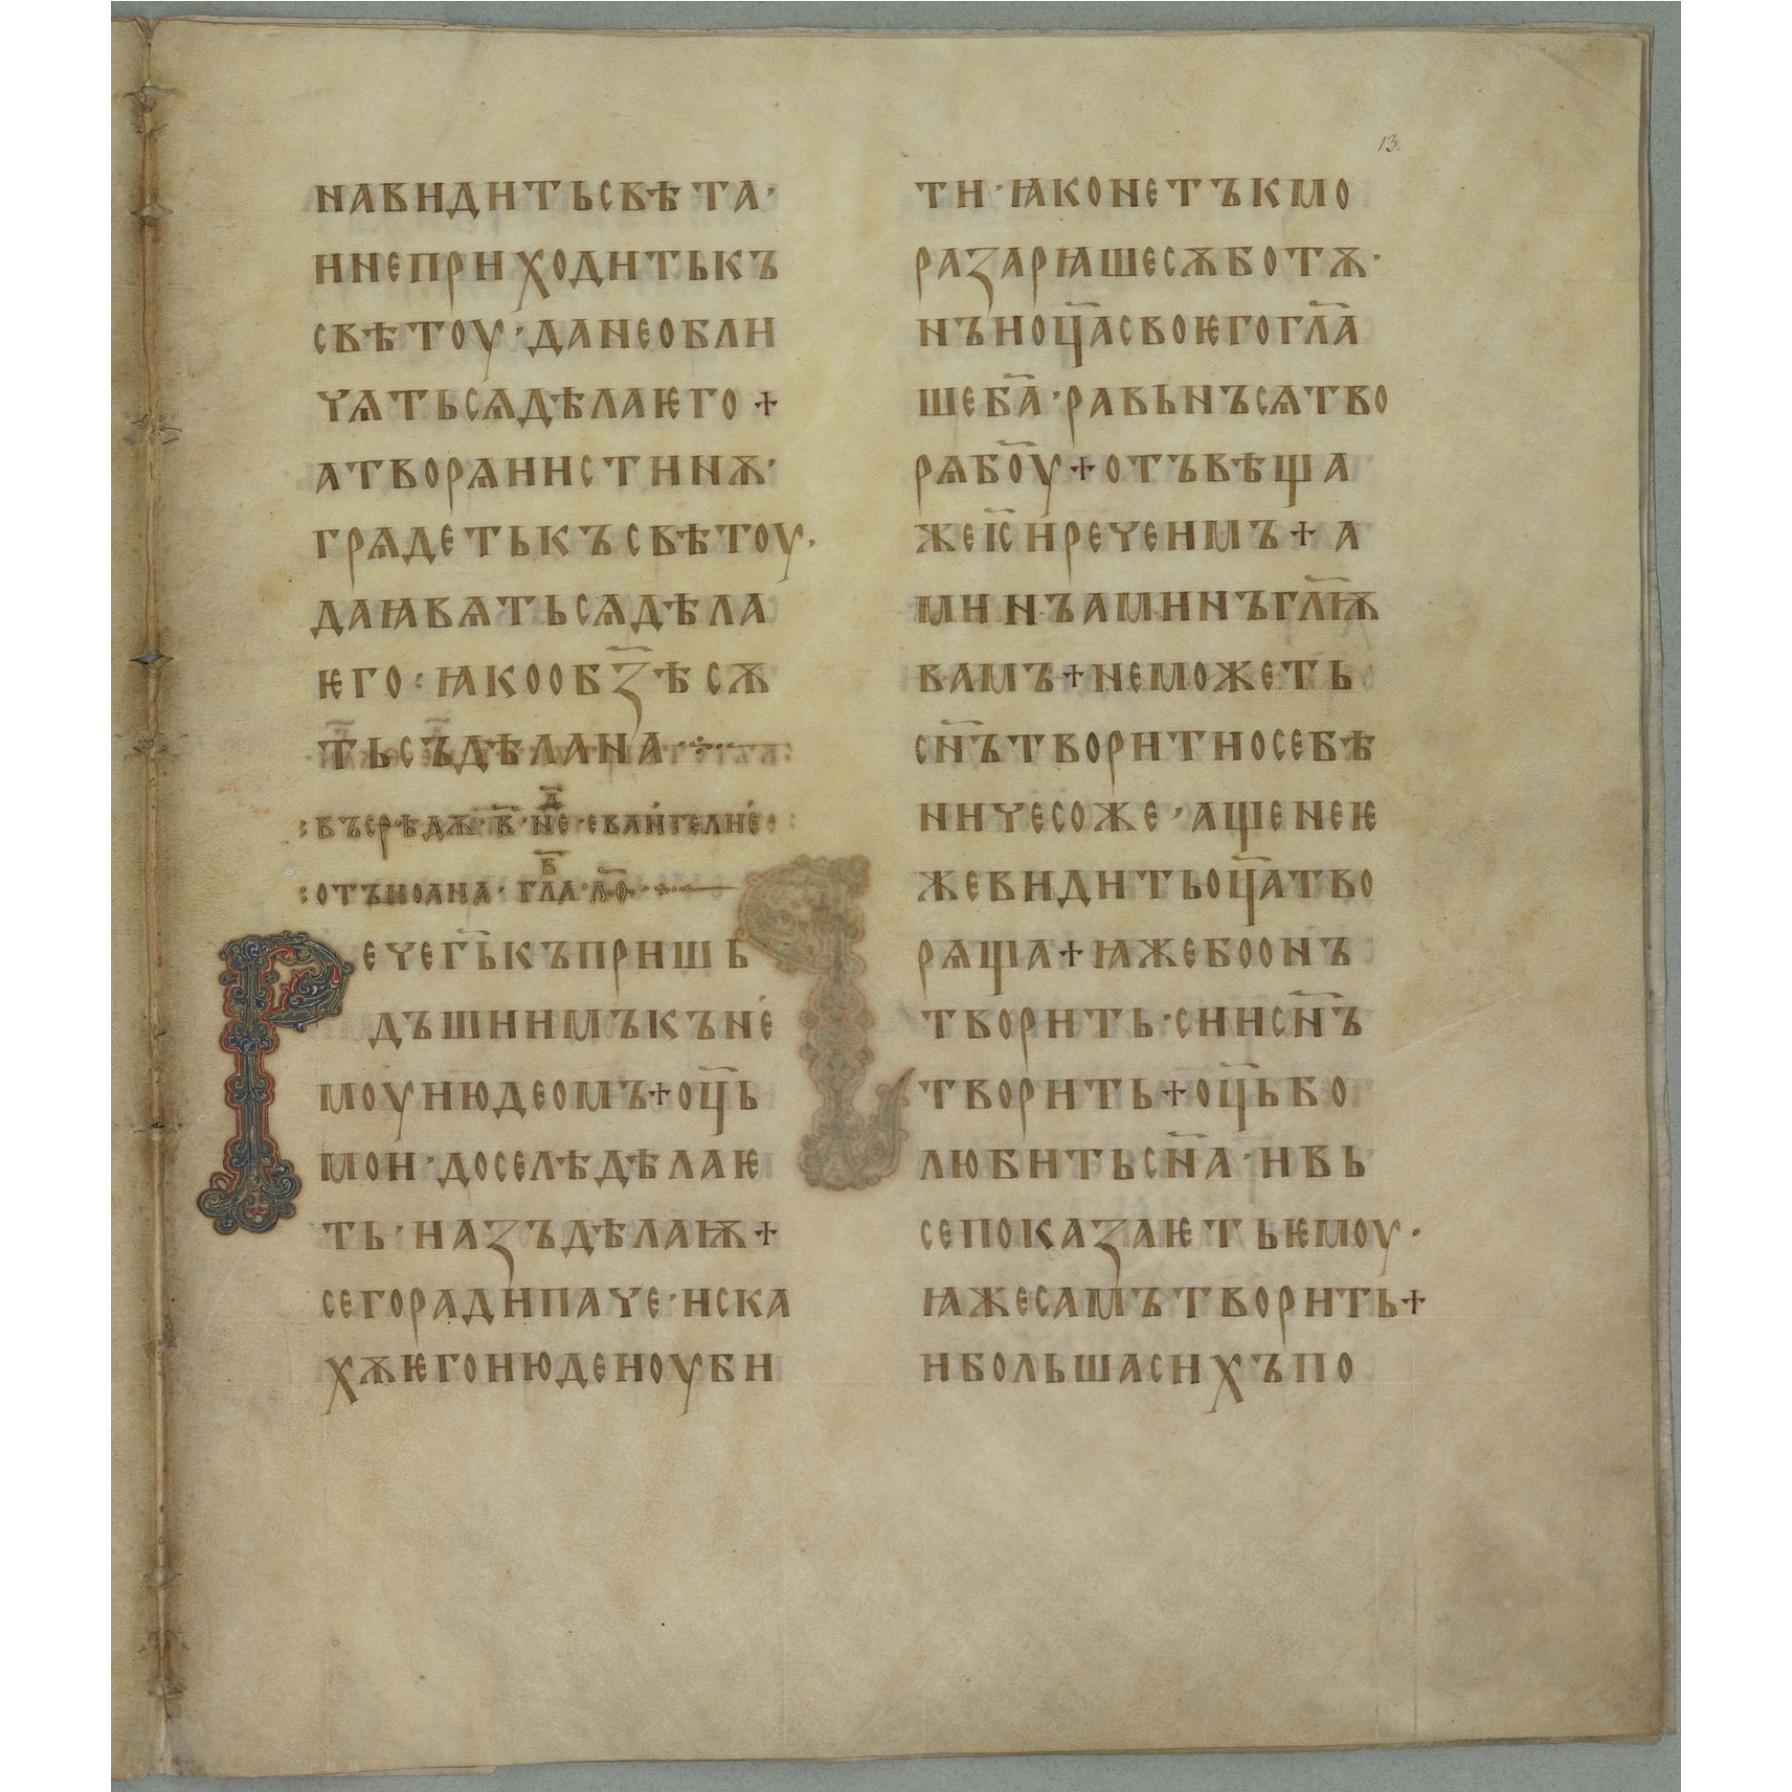 13.
навидитьсвѣта·
инеприходитькъ
свѣтоу·данеобли
чѧтьсѧдѣлаѥго +
атворѧиистинѫ·
грѧдетькъсвѣтоу·
даꙗвѧтьсѧдѣла
ѥго:ꙗкообз҃ѣсѫ
тьсъ̄дѣлана·÷·—
:въсрѣдѫ·в҃·неⷣ·еваńгелиé·
:отъиоана·глаⷡ҇·л҃ѳ·:·—
Речег҃ькъпришь
дъшиимъкънé
моуиюдеомъ+оц҃ь
мои·доселѣдѣлаѥ
ть·иазъдѣлаѭ+
сегорадипаче·иска
хѫѥгоиюдеиоуби
ти·ꙗконетъкмо
разарꙗшесѫботѫ·
нъиоц҃асвоѥгогл҃а
шеб҃а·равьнъсѧтво
рѧбо҃у+отъвѣща
жеі҃сиречеимъ+ а
минъаминъгл҃ѭ
вамъ+неможеть
сн҃ътворитиосебѣ
ничесоже·ащенеѥ
жевидитьоц҃атво
рѧща+ꙗжебоонъ
творить·сиисн҃ъ
творить+оц҃ьбо
любитьсн҃а·ивь
сепоказаѥтьѥмоу·
ꙗжесамътворить+
ибольшасихъпо